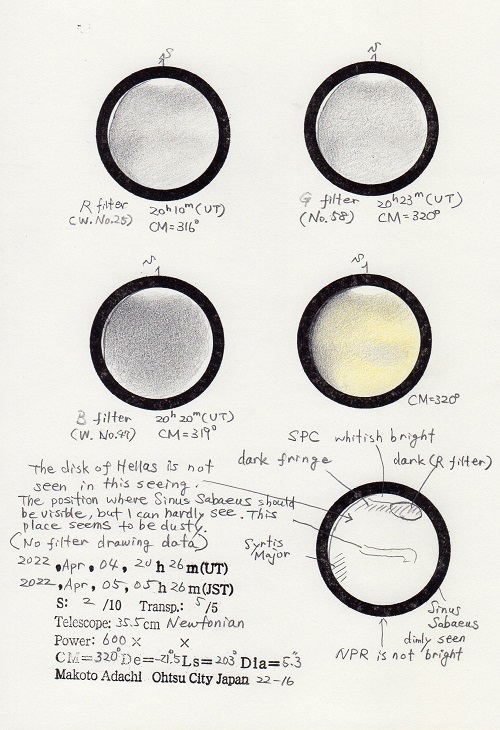 S
R filter
(W. No.25)
20h10m(UT)
CM=316°
S
G filter
(No. 58)
20h23m(UT)
CM=320°
S
B filter
(W. No.47)
20h20m(UT)
CM=319°
S
CM=320°
SPC whitish bright
dark fringe
dark (R filter)
The disk of Hellas is not
seen in this seeing.
The position where Sinus Sabaeus should
be visible, but I can hardly see. This
place seems to be dusty.
(No filter drawing data)
Syrtis
Major
2022, Apr, 04, 20h 26m(UT)
2022, Apr, 05, 05h 26m(JST)
S: 2 /10 Transp.: 5/5
Telescope: 35.5cm Newtonian
Power: 600 × ×
CM=320° De=-21.5 Ls=203° Dia=5.3
Makoto Adachi Ohtsu City Japan 22-16
Sinus
Sabaeus
dimly seen
NPR is not bright